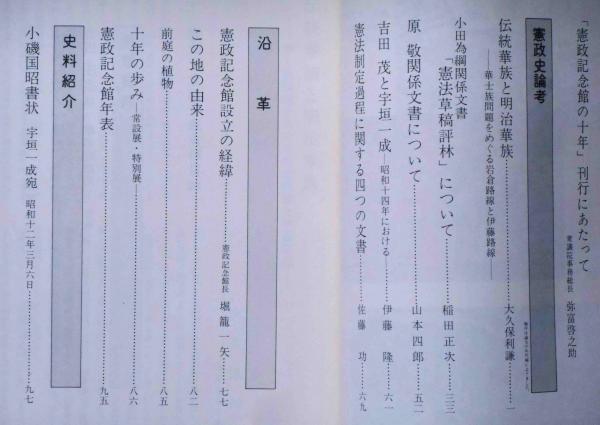 「憲政記念館の十年」刊行にあたって
衆議院事務総長 弥富啓之助
憲政史論考
伝統華族と明治華族……大久保利謙…一
——華士族問題をめぐる岩倉路線と伊藤路線——
小田為綱関係文書
「憲法草稿評林」について……稲田正次…三三
原 敬関係文書について……山本四郎…五二
吉田 茂と宇垣一成—昭和十四年における—……伊藤 隆…六一
憲法制定過程に関する四つの文書……佐藤 功…六九
沿革
憲政記念館設立の経緯……憲政記念館長 堀籠一矢…七七
この地の由来……八二
前庭の植物……八五
十年の歩み—常設展・特別展—……八六
憲政記念館年表……九五
史料紹介
小磯国昭書状 宇垣一成宛 昭和十二年三月六日……九七